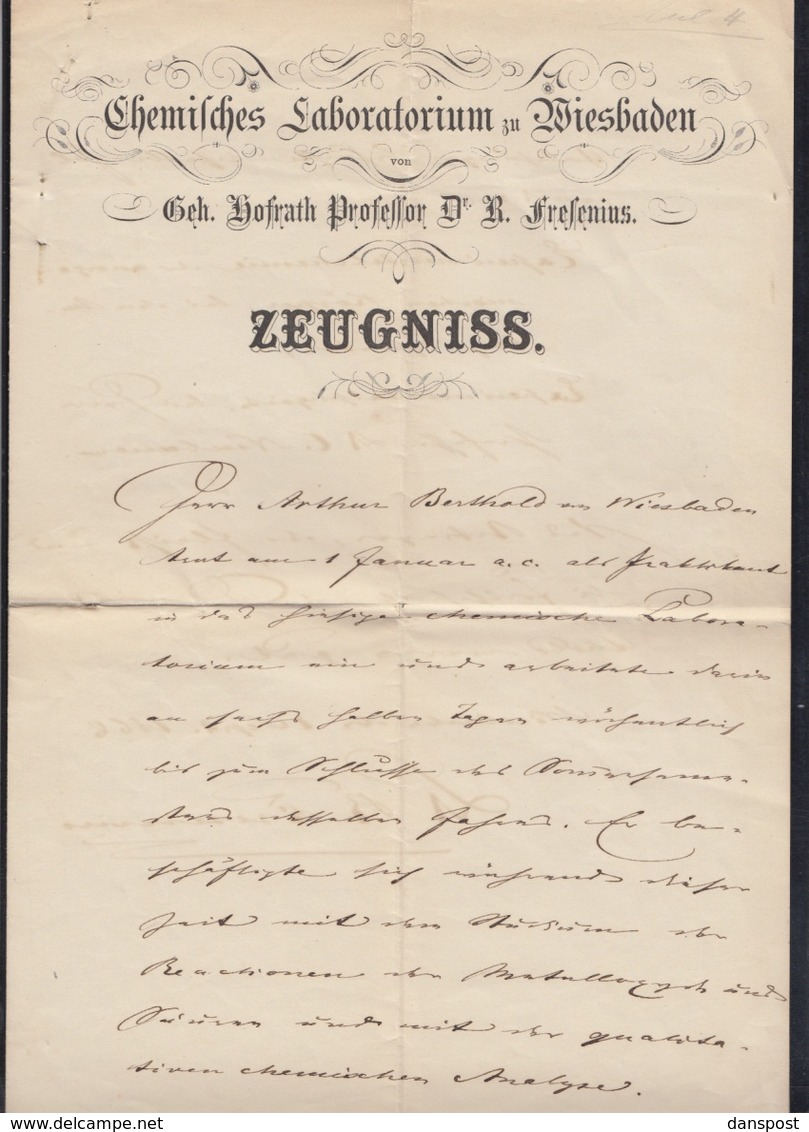 4
Chemisches Laboratorium zu Wiesbaden
von
Geh. Hofrath Professor Dr. R. Fresenius.
ZEUGNISS.
Herr Arthur Berthold von Wiesbaden
trat am 1 Januar a. c. als Praktikant
in das hiesige chemische Labora-
torium ein und arbeitete darin
an sechs halben Tagen wöchentlich
bis zum Schlusse des Sommerseme-
sters desselben Jahres. Er be-
schäftigte sich während dieser
Zeit mit dem Studium der
Reactionen der Metalloxyde und
Säuren und mit der qualita-
tiven chemischen Analyse.
danspost